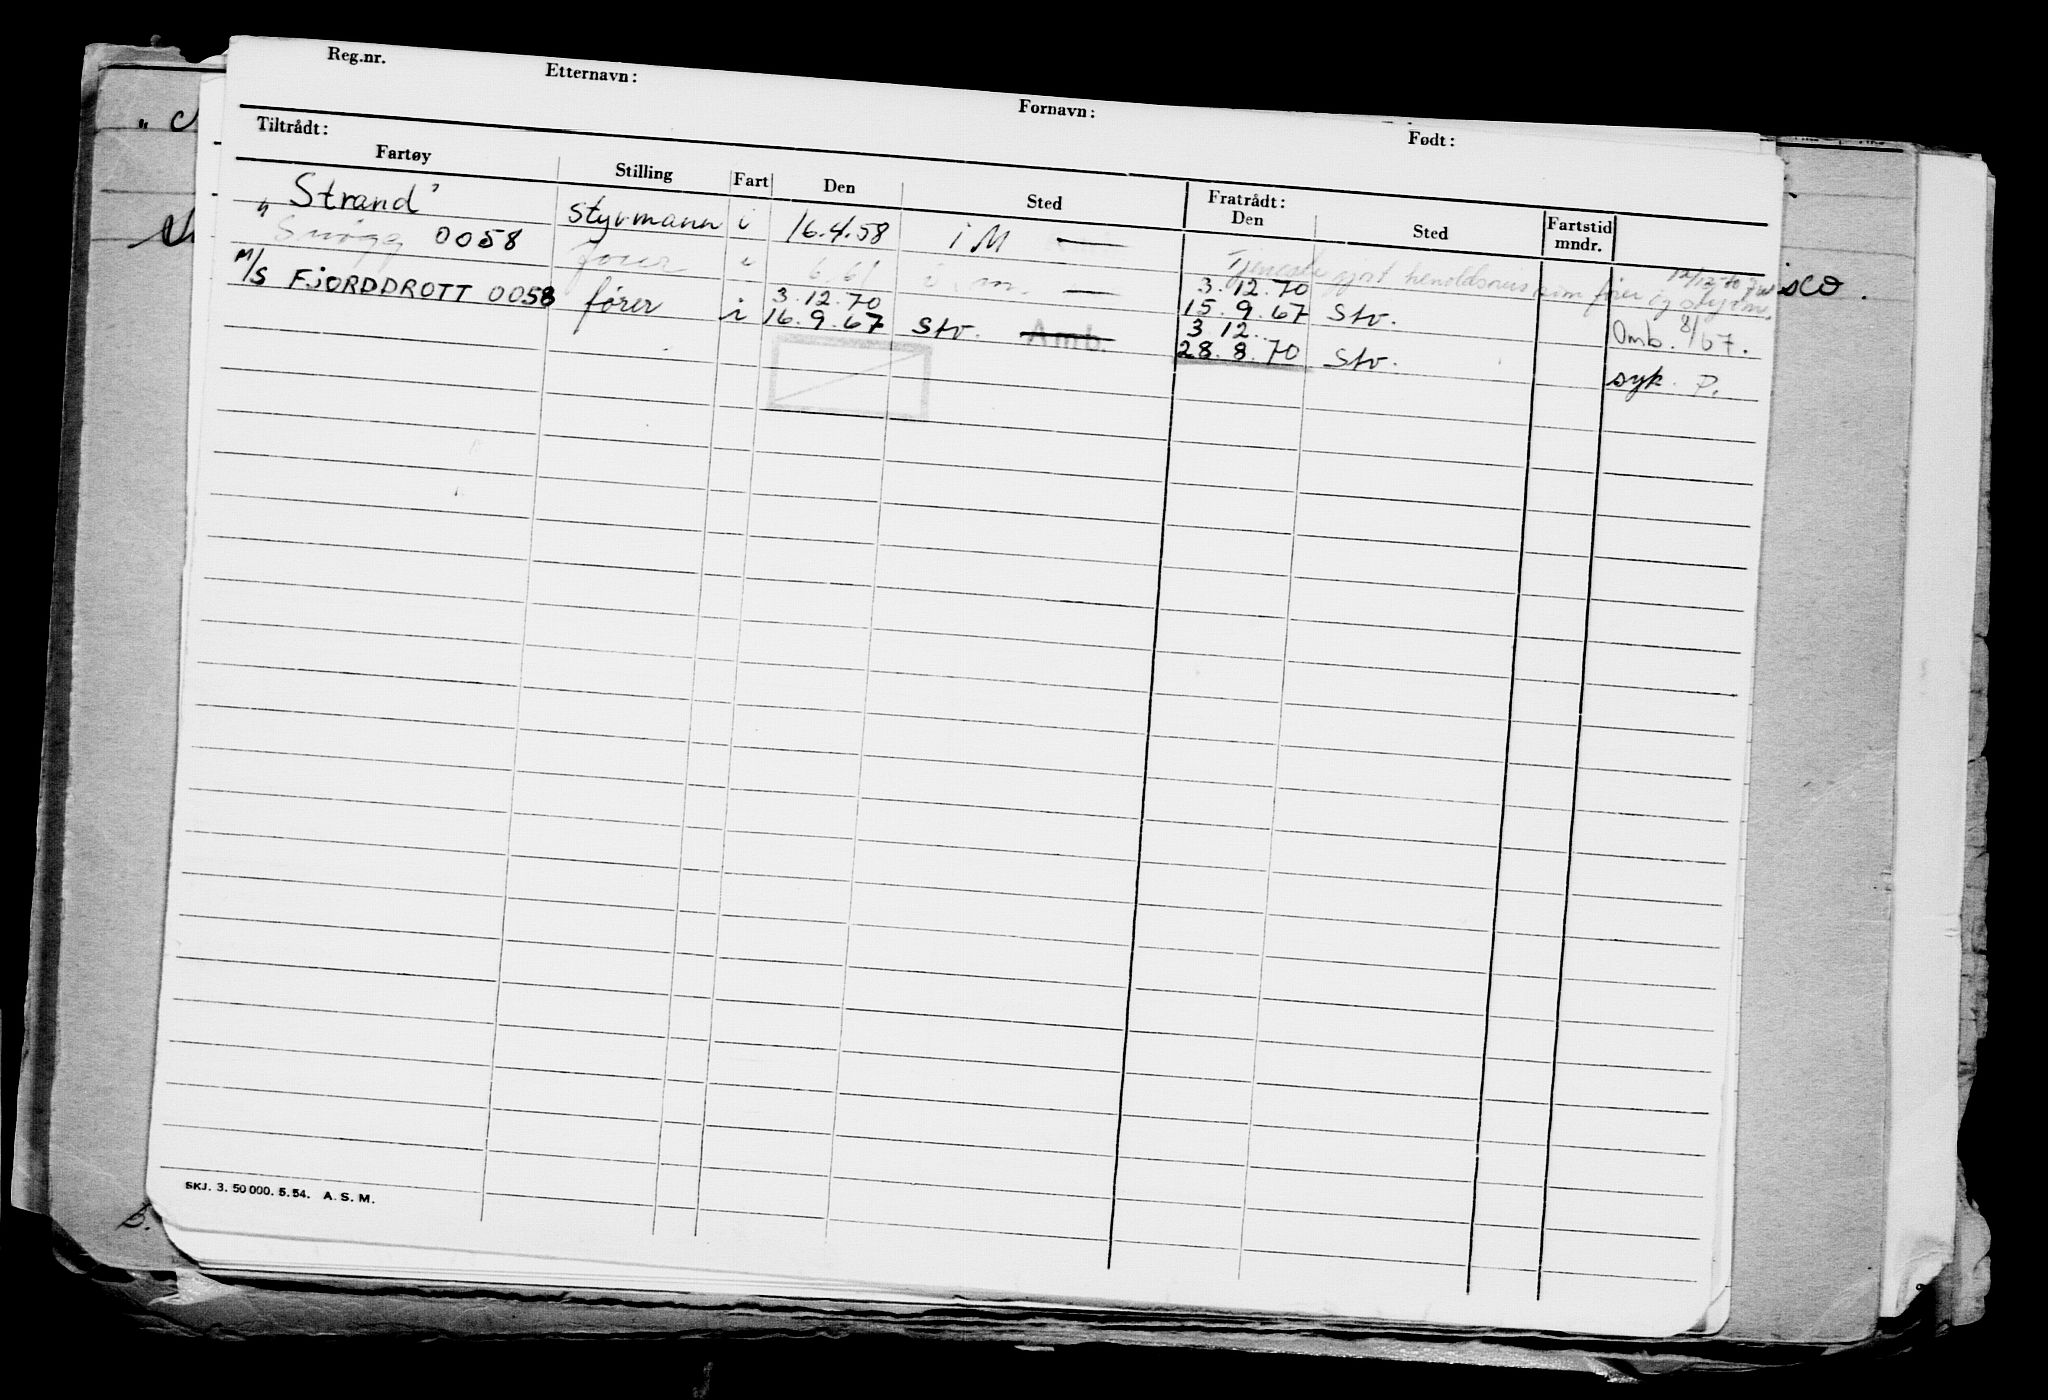 Reg.nr. Etternavn: Fornavn: Født:
Tiltrådt: Fratrådt:
Fartøy Stilling Fart Den Sted Den Sted Fartstid mndr.
"Strand" styrmann i 16.4.58 i M —
Snøgg 0058 fører i 6/61 i m. — Tjeneste gjort henholdsvis som fører og styrm. 12/12-70
3.12.70 3.12.70
M/S FJORDDROTT 0058 fører i 16.9.67 Stv. Amb. 15.9.67 Stv. Omb. 8/67.
3.12.
28.8.70 Stv. syk. P.
isco.
SKJ. 3. 50 000. 5.54. A. S. M.
B.